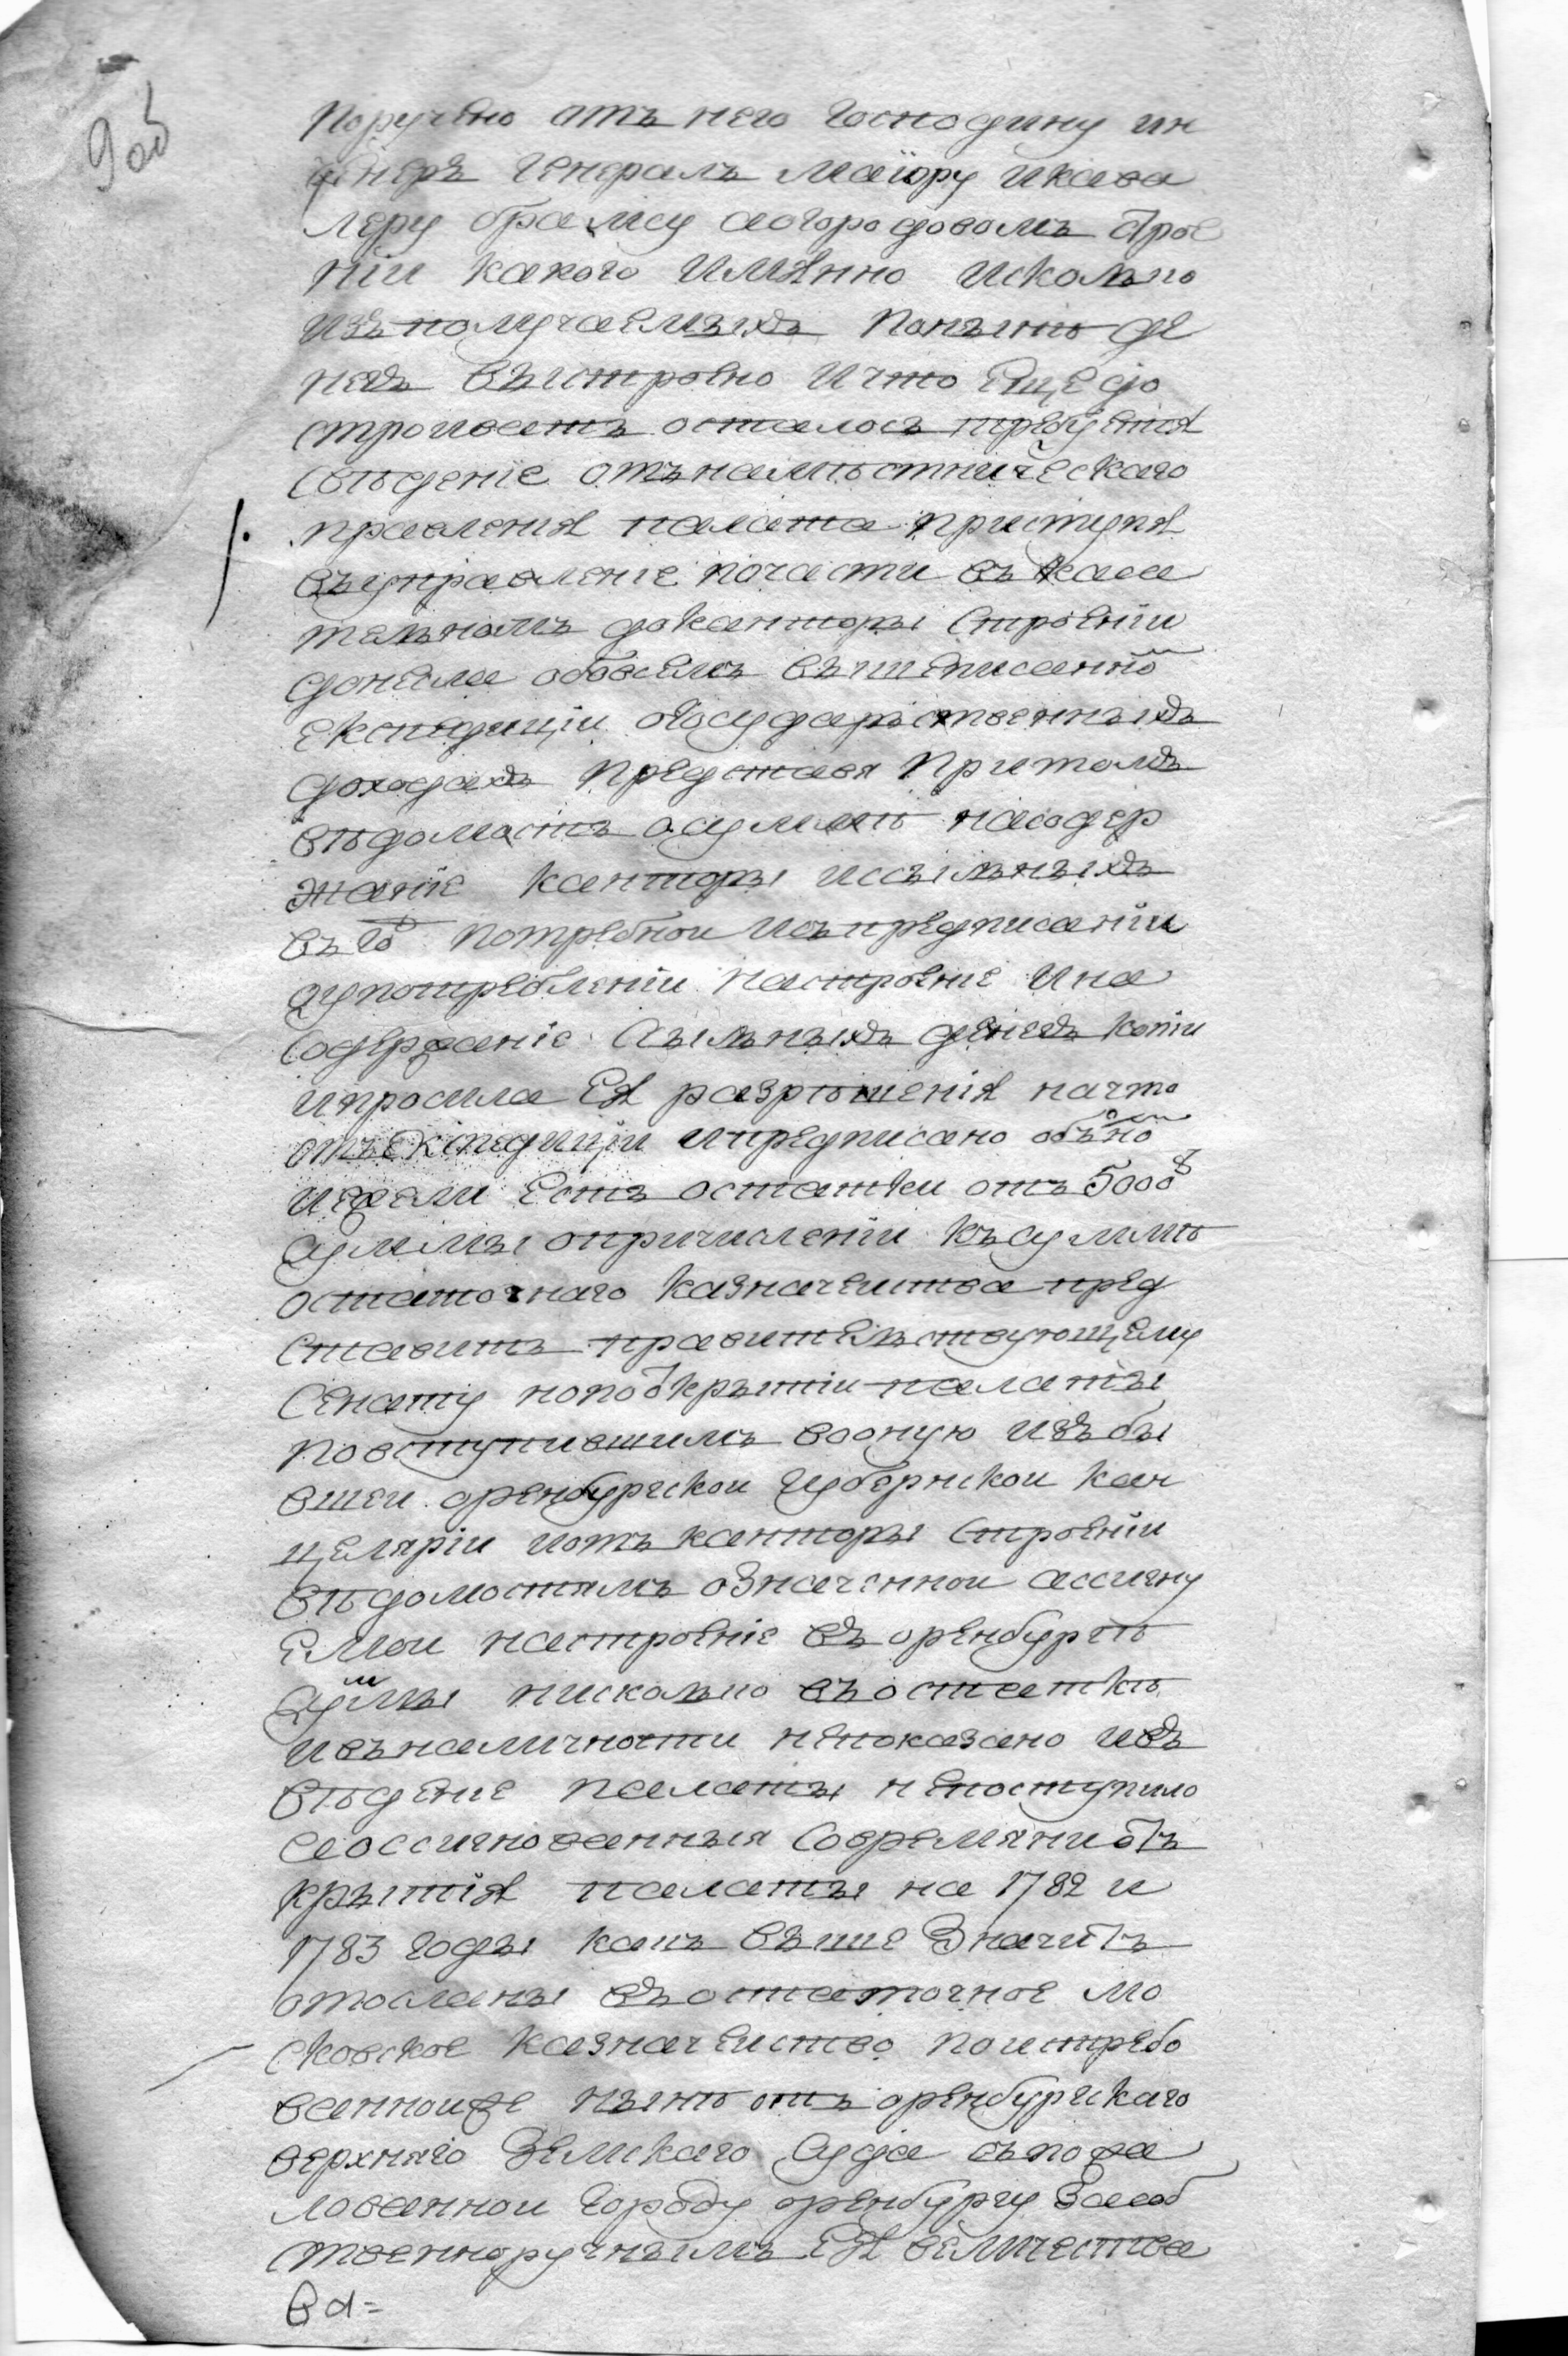 9об
поручено отъ него господину ин
женеръ генералъ маіору икава
леру брамсу агородовомъ строе
ніи какого имянно исколко
изъ получаемыхъ поныне де
негъ выстроено ичто еще до
строивать осталось требуется
сведеніе отънаместническаго
правленія палата приступя
въуправленіе почасти въ каса
телномъ доканторы строеніи
донесла обовсемъ вышеписанно
експедиціи огосударственныхъ
доходахъ представя притомъ
ведомость осумме насодер
жаніе канторы иссылныхъ
въго потребнои исъпредписаніи
оупотребленіи настроеніе ина
содержаніе ссылныхъ денегъ копіи
ипросила ея разрешенія начто
отъекспедиціи ипредписано обыно
иежели есть остатки отъ 5000
суммы опричисленіи късумме
остаточнаго казначеиства пред
ставить правителствующему
сенату нопооткрытіи палаты
повступившимъ вооную изъ бы
вшеи оренбургскои губернскои кан
целяріи иотъ канторы строеніи
ведомостямъ означеннои ассигну
емои настроеніе въ оренбурге
сумы нисколко въостатке
ивъналичности непоказано ивъ
ведение палаты непоступило
аоссигнованныя совремяниот
крытія палаты на 1782 и
1783 годы какъ выше значитъ
отосланы въостаточное мо
сковское казначеиство поистребо
ваннои же ныне отъ оренбургскаго
верхняго земскаго суда съпожа
лованнои городу оренбургу засоб
ственноручнымъ ея величества
вы=